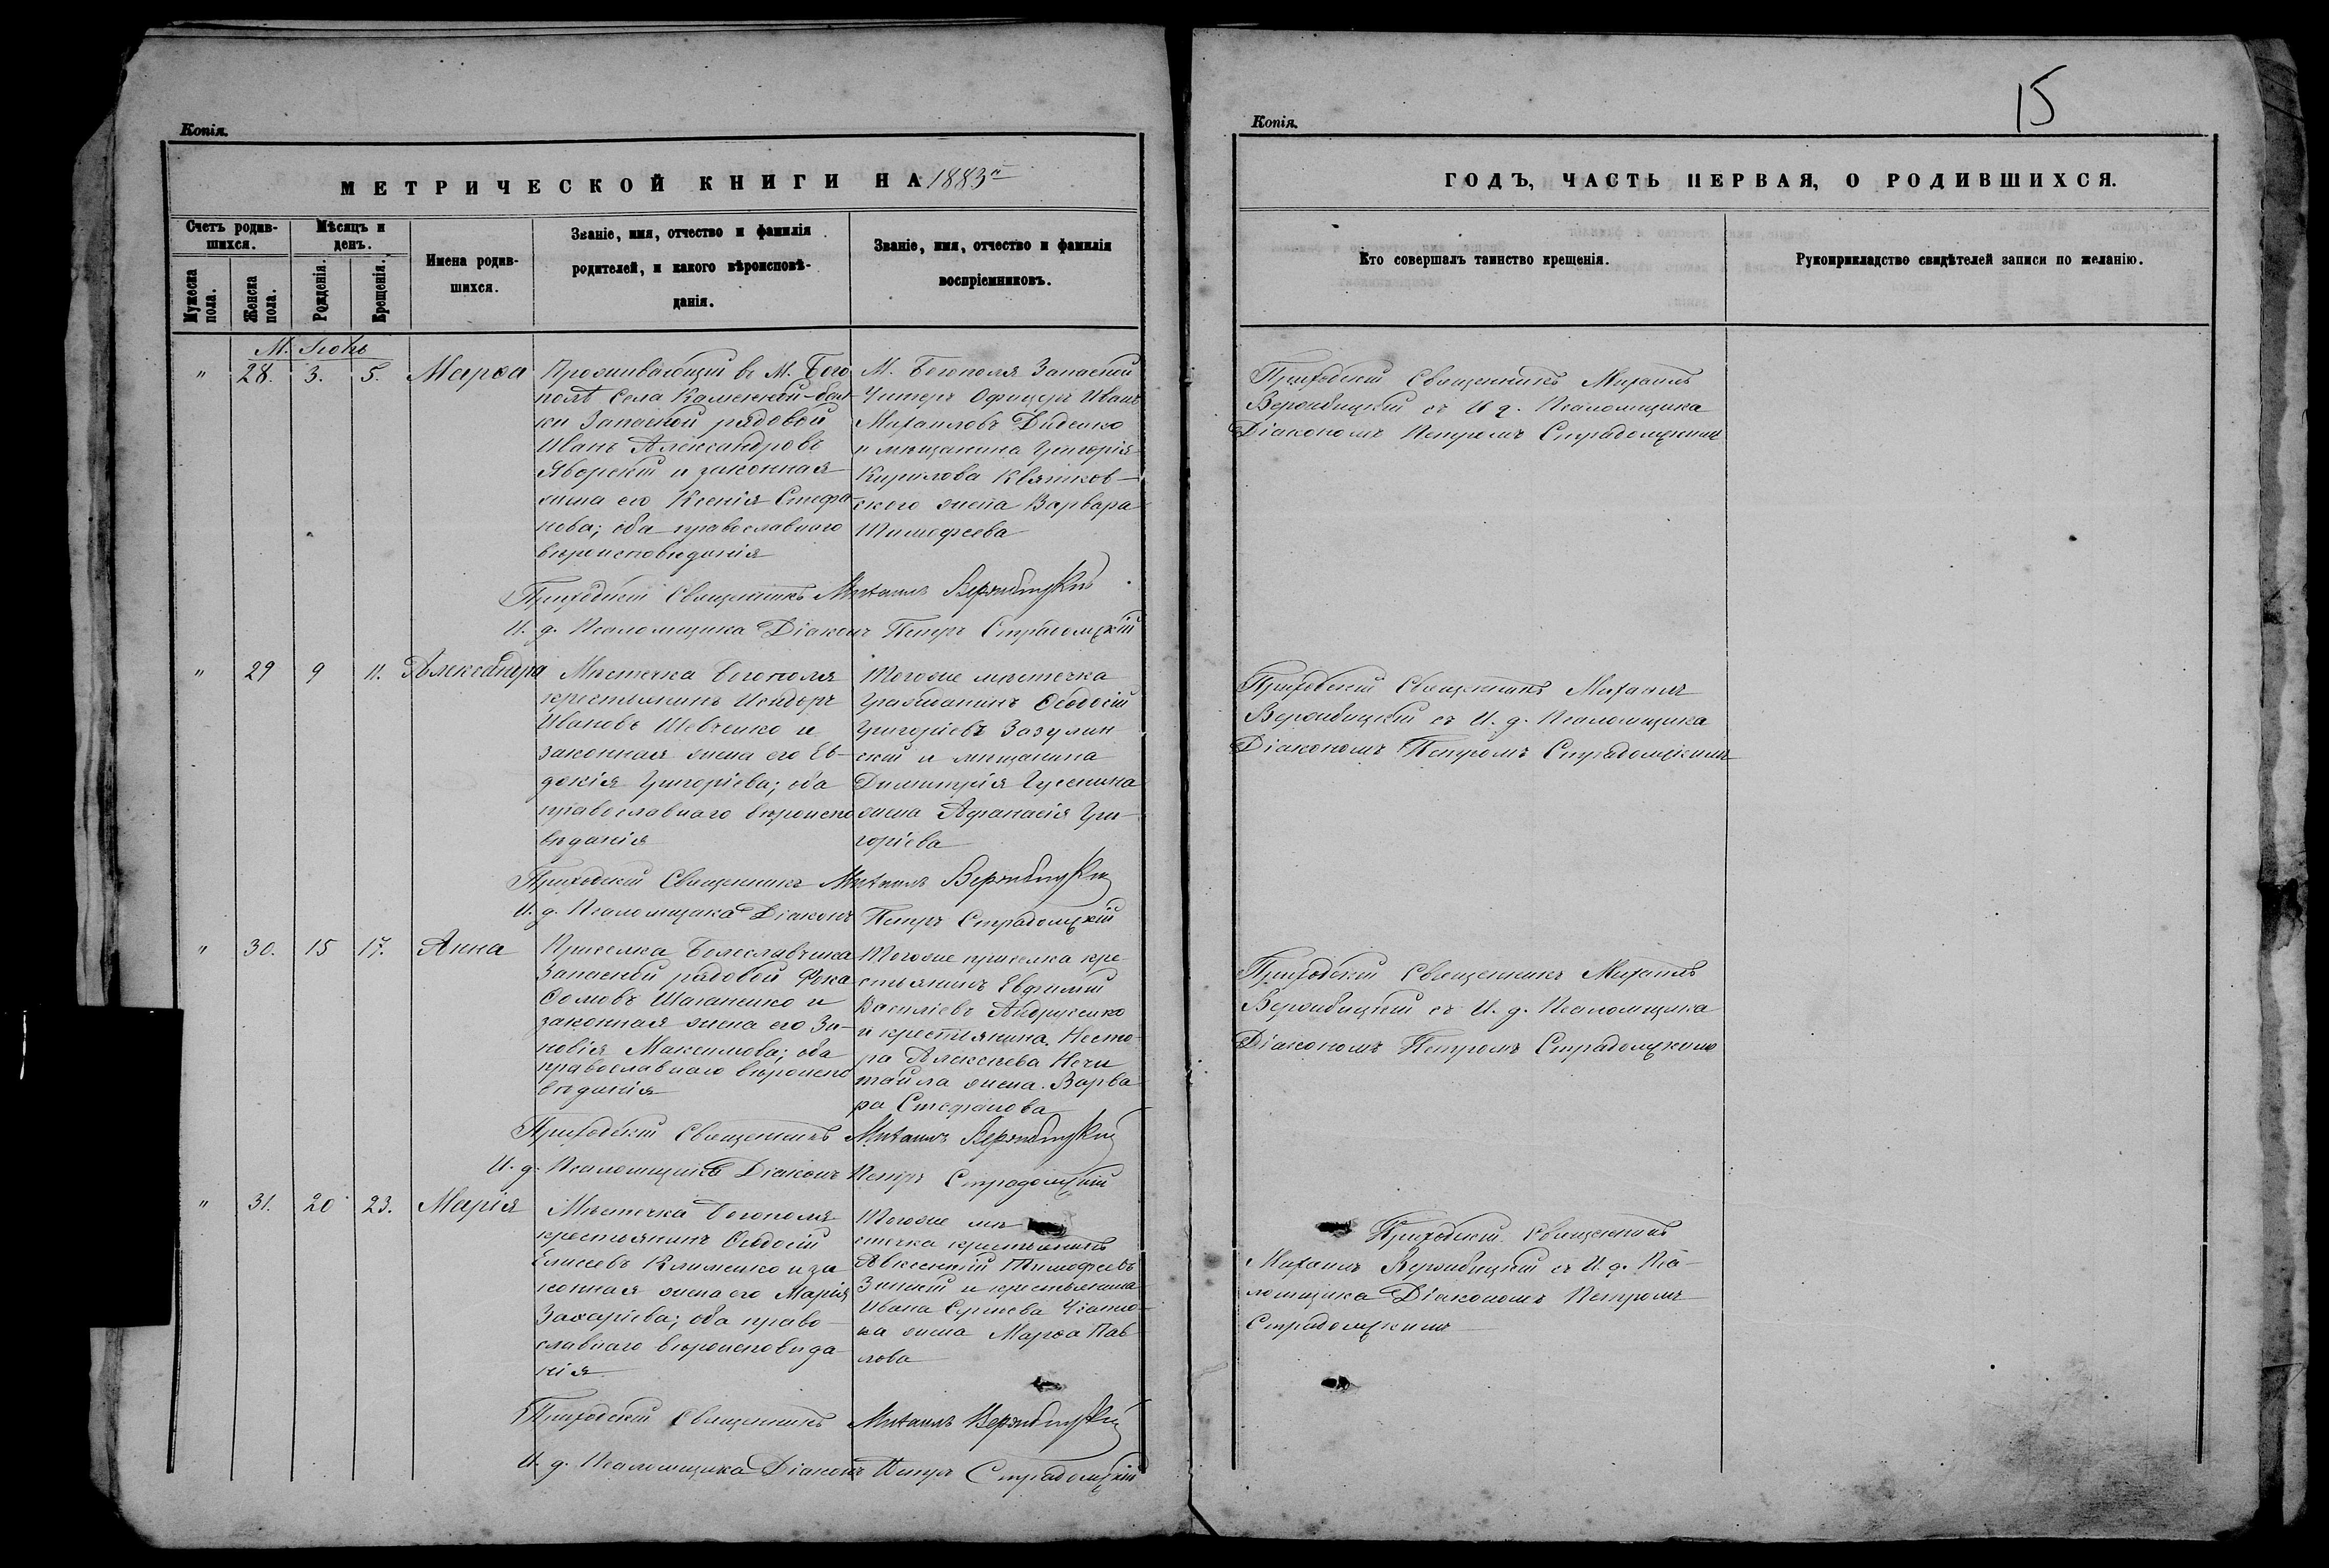 Копія.
МЕТРИЧЕСКОЙ КНИГИ НА 1883й
Счетъ родив-
шихся.
Мѣсяцъ и
день.
Мужеска
пола.
Женска
пола.
Рожденія.
Крещенія.
Имена родив-
шихся.
Званіе, имя, отчество и фамилія
родителей, и какого вѣроисповѣ-
данія.
Званіе, имя, отчество и фамилія
воспріемниковъ.
М. Іюнь
" 28. 3. 5. Марѳа
Проживающій въ М. Бого
полѣ Села Каменной-бал-
ки Запасной рядовой
Иванъ Александровъ
Яворскій и законная
жена его Ксенія Стефа-
нова; оба православнаго
вѣроисповѣданія
М. Богополя Запасной
Унтеръ Офицеръ Иванъ
Михаиловъ Диденко
и мѣщанина Григорія
Кирилова Квятков-
ского жена Варвара
Тимофеева
Приходскій Священникъ Михаилъ Вержбицкій
И. д. Псаломщика Діаконъ Петръ Страдомскій
" 29 9 11. Александра
Мѣстечка Богополя
крестьянинъ Исидоръ
Ивановъ Шевченко и
законная жена его Ев-
докія Григоріева; оба
православнаго вѣроиспо
вѣданія
Тогоже мѣстечка
гражданинъ Ѳеодосій
Григоріевъ Зазулин-
скій и мѣщанина
Димитрія
жена Афанасія Гри-
горіева
Приходскій Священникъ Михаилъ Вержбицкій
И. д. Псаломщика Діаконъ Петръ Страдомскій
" 30. 15 17. Анна
Приселка Болеславчика
Запасной рядовой Фока
законная жена его Зи-
новія Максимова; оба
православнаго вѣроиспо
вѣданія
Тогоже приселка кре-
стьянинъ Евфимій
Василіевъ Андрусенко
и крестьянина Несто-
ра Алексѣева Нечи
тайла жена Варва
ра Стефанова
Приходскій Священникъ Михаилъ Вержбицкій
И. д. Псаломщика Діаконъ Петръ Страдомскій
" 31. 20 23. Марія
Мѣстечка Богополя
крестьянинъ Ѳеодосій
Елисеевъ Клименко и за
конная жена его Марія
Захаріева; оба право-
славнаго вѣроисповѣда
нія
Тогоже мѣ
стечка крестьянинъ
Авксентій Тимофеевъ
и крестьянина
Ивана
жена Марѳа Пав
лова
Приходскій Священникъ Михаилъ Вержбицкій
И. д. Псаломщика Діаконъ Петръ Страдомскій
15
Копія.
ГОДЪ, ЧАСТЬ ПЕРВАЯ, О РОДИВШИХСЯ.
Кто совершалъ таинство крещенія.
Рукоприкладство свидѣтелей записи по желанію.
Приходскій Священникъ Михаилъ
Вержбицкій съ И. д. Псаломщика
Діакономъ Петромъ Страдомскимъ
Приходскій Священникъ Михаилъ
Вержбицкій съ И. д. Псаломщика
Діакономъ Петромъ Страдомскимъ
Приходскій Священникъ Михаилъ
Вержбицкій съ И. д. Псаломщика
Діакономъ Петромъ Страдомскимъ
Приходскій Священникъ
Михаилъ Вержбицкій съ И. д. Пса-
ломщика Діакономъ Петромъ
Страдомскимъ